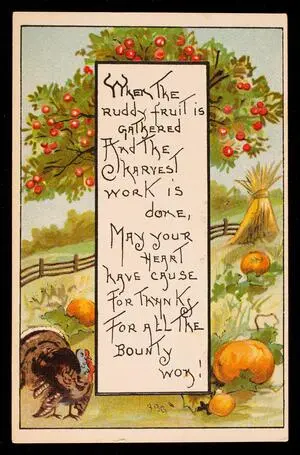 When the
ruddy fruit is
gathered
And the
Harvest
work is
done,
May your
heart
have cause
For thanks
For all the
Bounty
won!